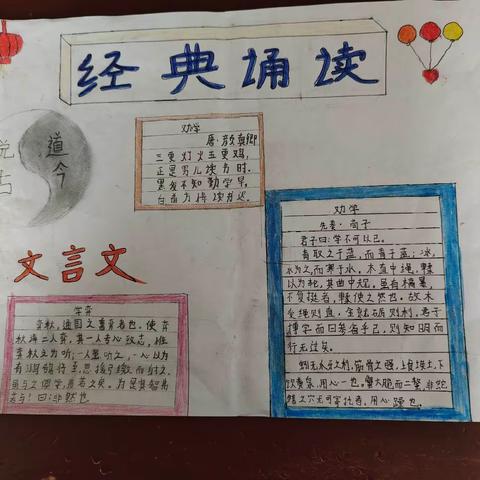 经典诵读
说古
道今
劝学
唐·颜真卿
三更灯火五更鸡,
正是男儿读书时。
黑发不知勤学早,
白首方悔读书迟。
文言文
学弈
弈秋,通国之善弈者也。使弈
秋诲二人弈,其一人专心致志,惟
弈秋之为听;一人虽听之,一心以为
有鸿鹄将至,思援弓缴而射之,
虽与之俱学,弗若之矣。为是其智弗
若与!曰:非然也
劝学
先秦·荀子
君子曰:学不可以已。
青取之于蓝,而青于蓝;冰,
水为之,而寒于水。木直中绳,輮
以为轮,其曲中规,虽有槁暴,
不复挺者,輮使之然也。故木
受绳则直,金就砺则利,君子
博学而日参省乎己,则知明而
行无过矣。
蚓无爪牙之利,筋骨之强,上食埃土,下
饮黄泉,用心一也。蟹六跪而二螯,非蛇
鳝之穴无可寄托者,用心躁也。